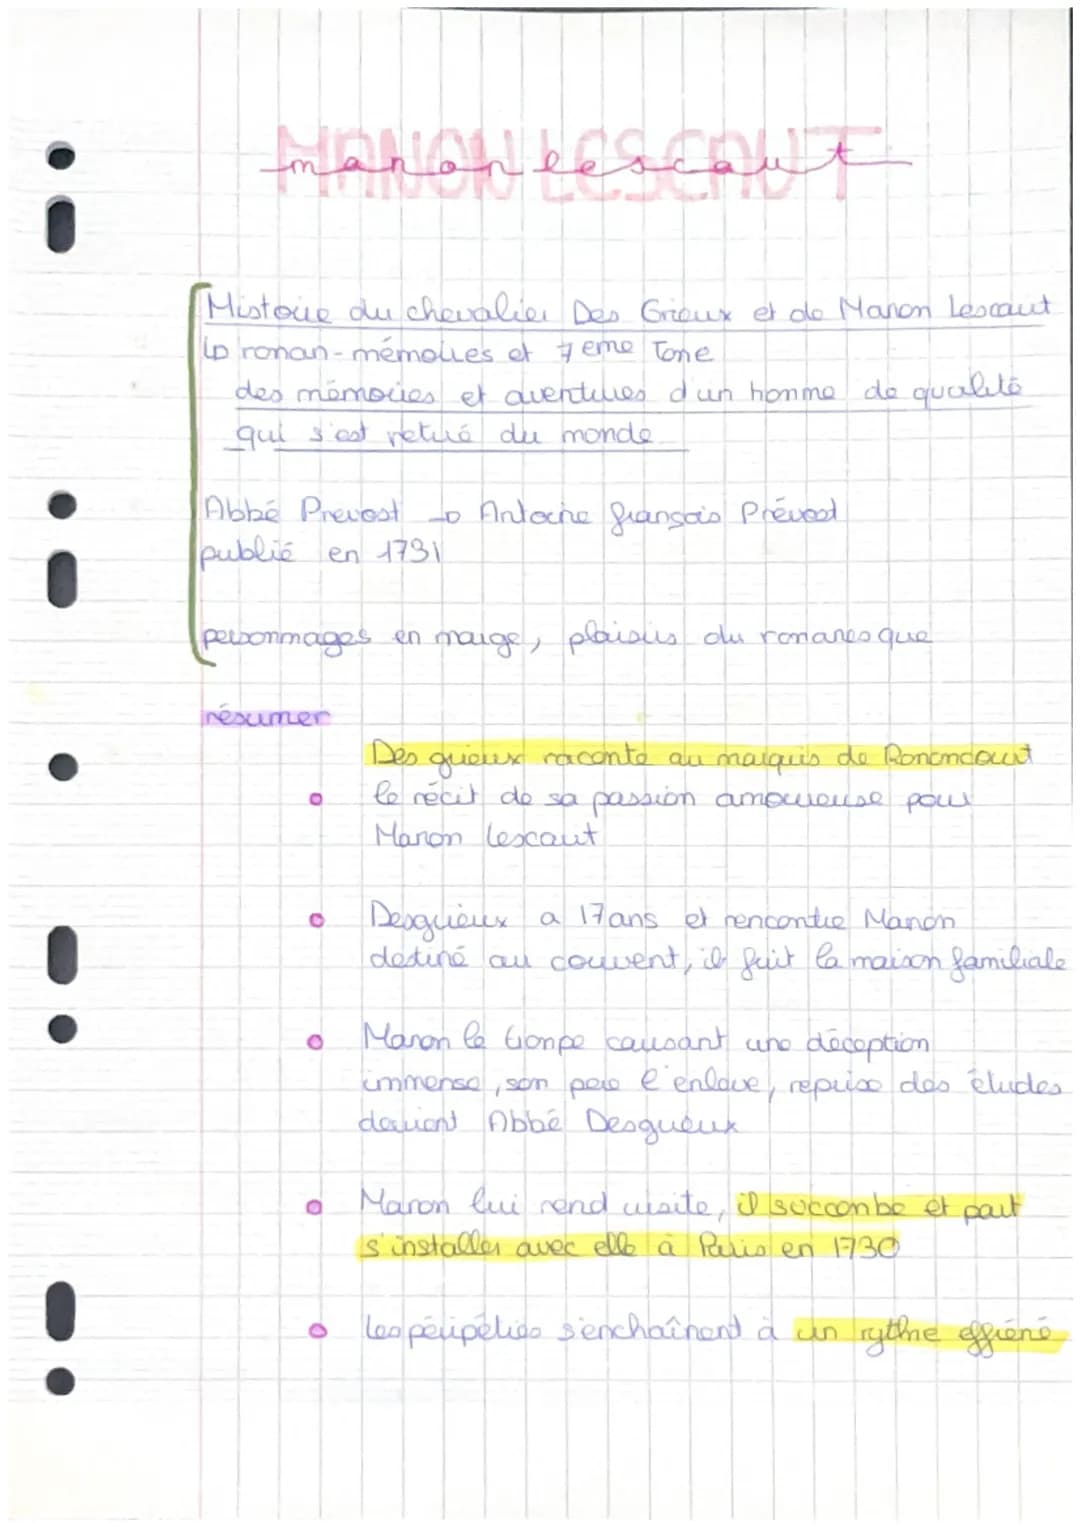 MANON LESCAUT
manon lescaut
Histoire du chevalier Des Grieux et de Manon Lescaut
↳ roman-mémoires et 7eme Tome
des mémoires et aventures d'un homme de qualité
qui s'est retiré du monde
Abbé Prevost → Antoine françois Prévost
publié en 1731
personnages en marge, plaisirs du romanesque
résumer
Des grieux raconte au marquis de Renoncourt
le récit de sa passion amoureuse pour
Manon Lescaut
Desgrieux a 17ans et rencontre Manon
destiné au couvent, il fuit la maison familiale
Manon le trompe causant une déception
immense, son père l'enlève, reprise des études
devient Abbé Desgrieux
Manon lui rend visite, il succombe et part
s'installer avec elle à Paris en 1730
les péripéties s'enchaînent à un rythme effréné